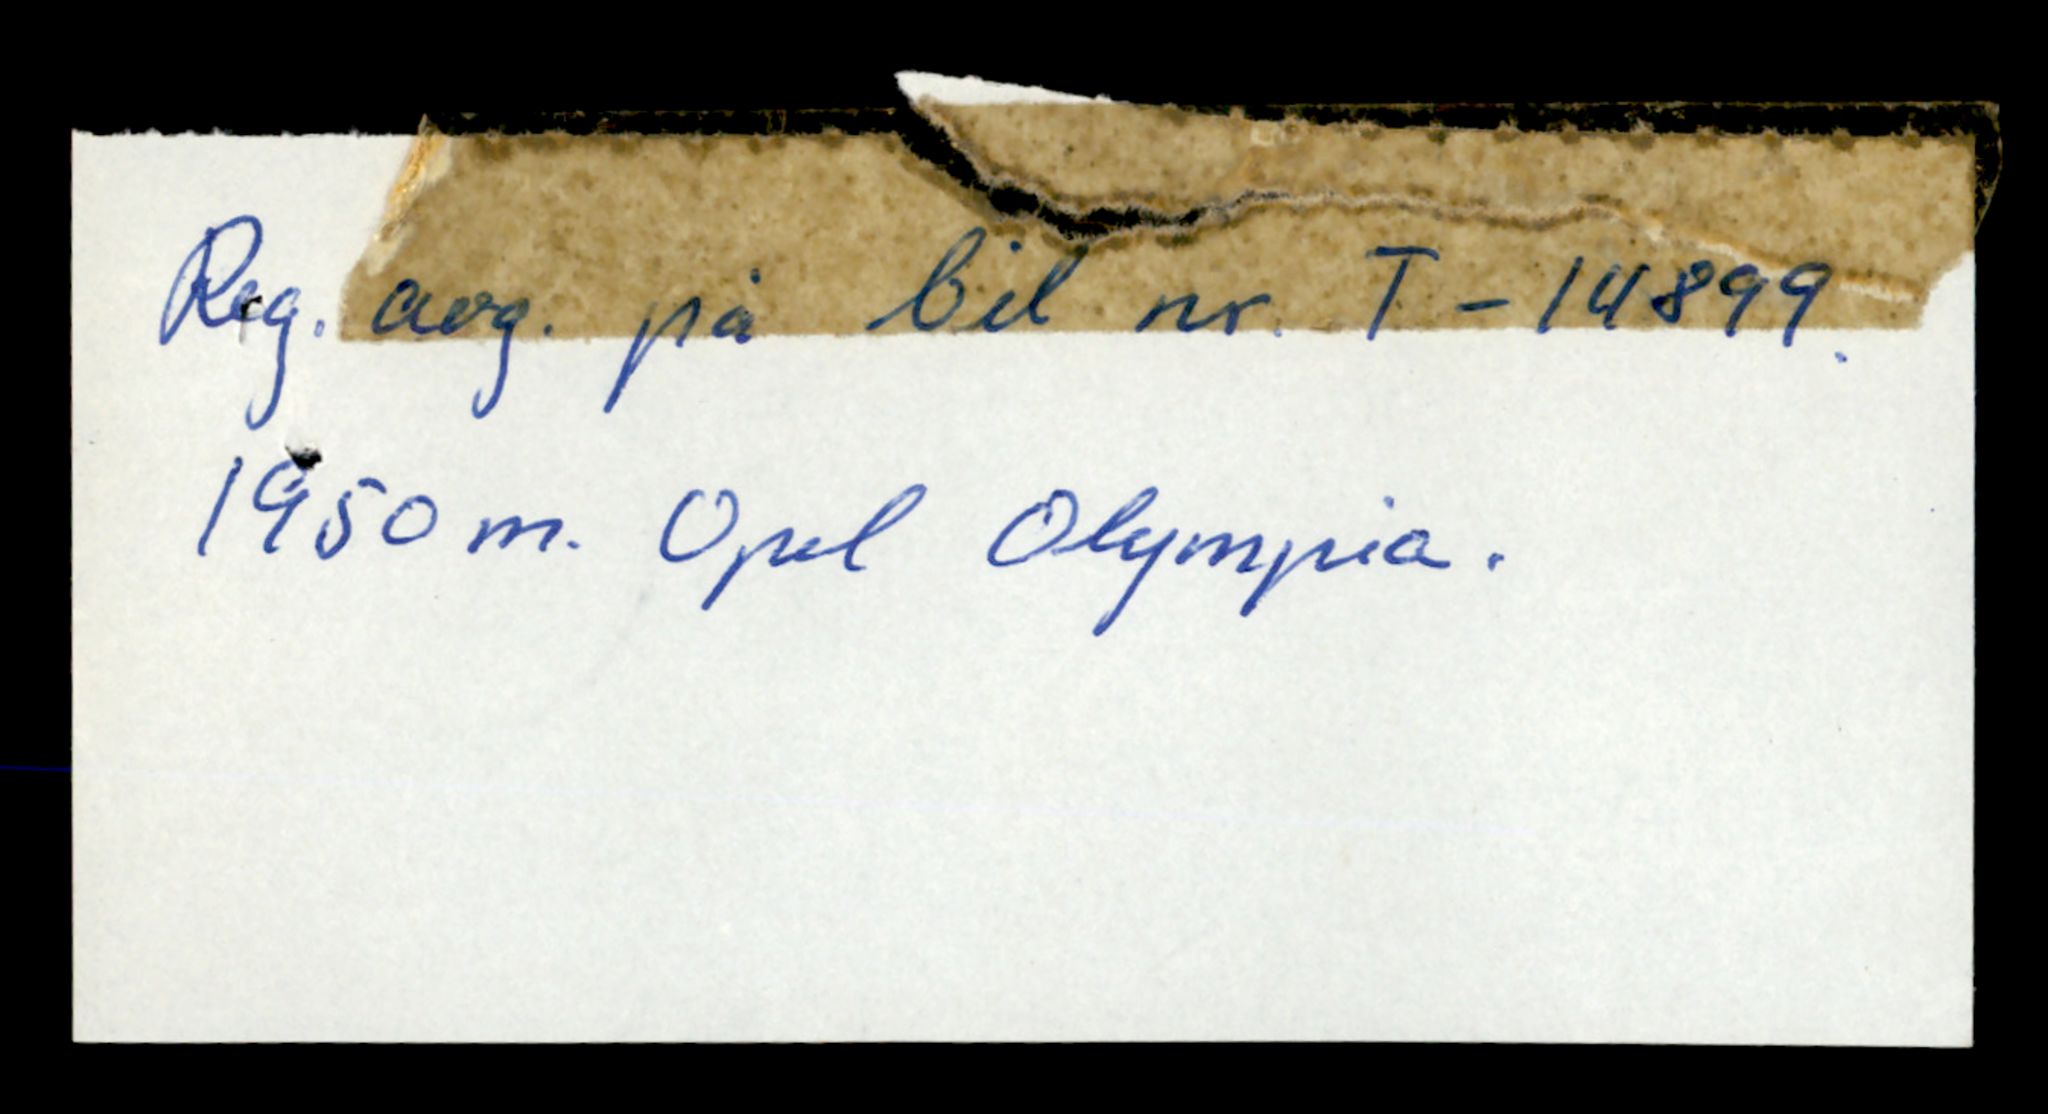 Reg. avg. på bil nr. T-14899.
1950 m. Opel Olympia.